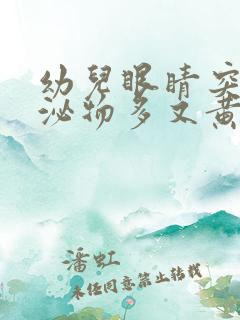 幼兒眼睛突
泌物多又黄
潘虹
未经同意禁止转载